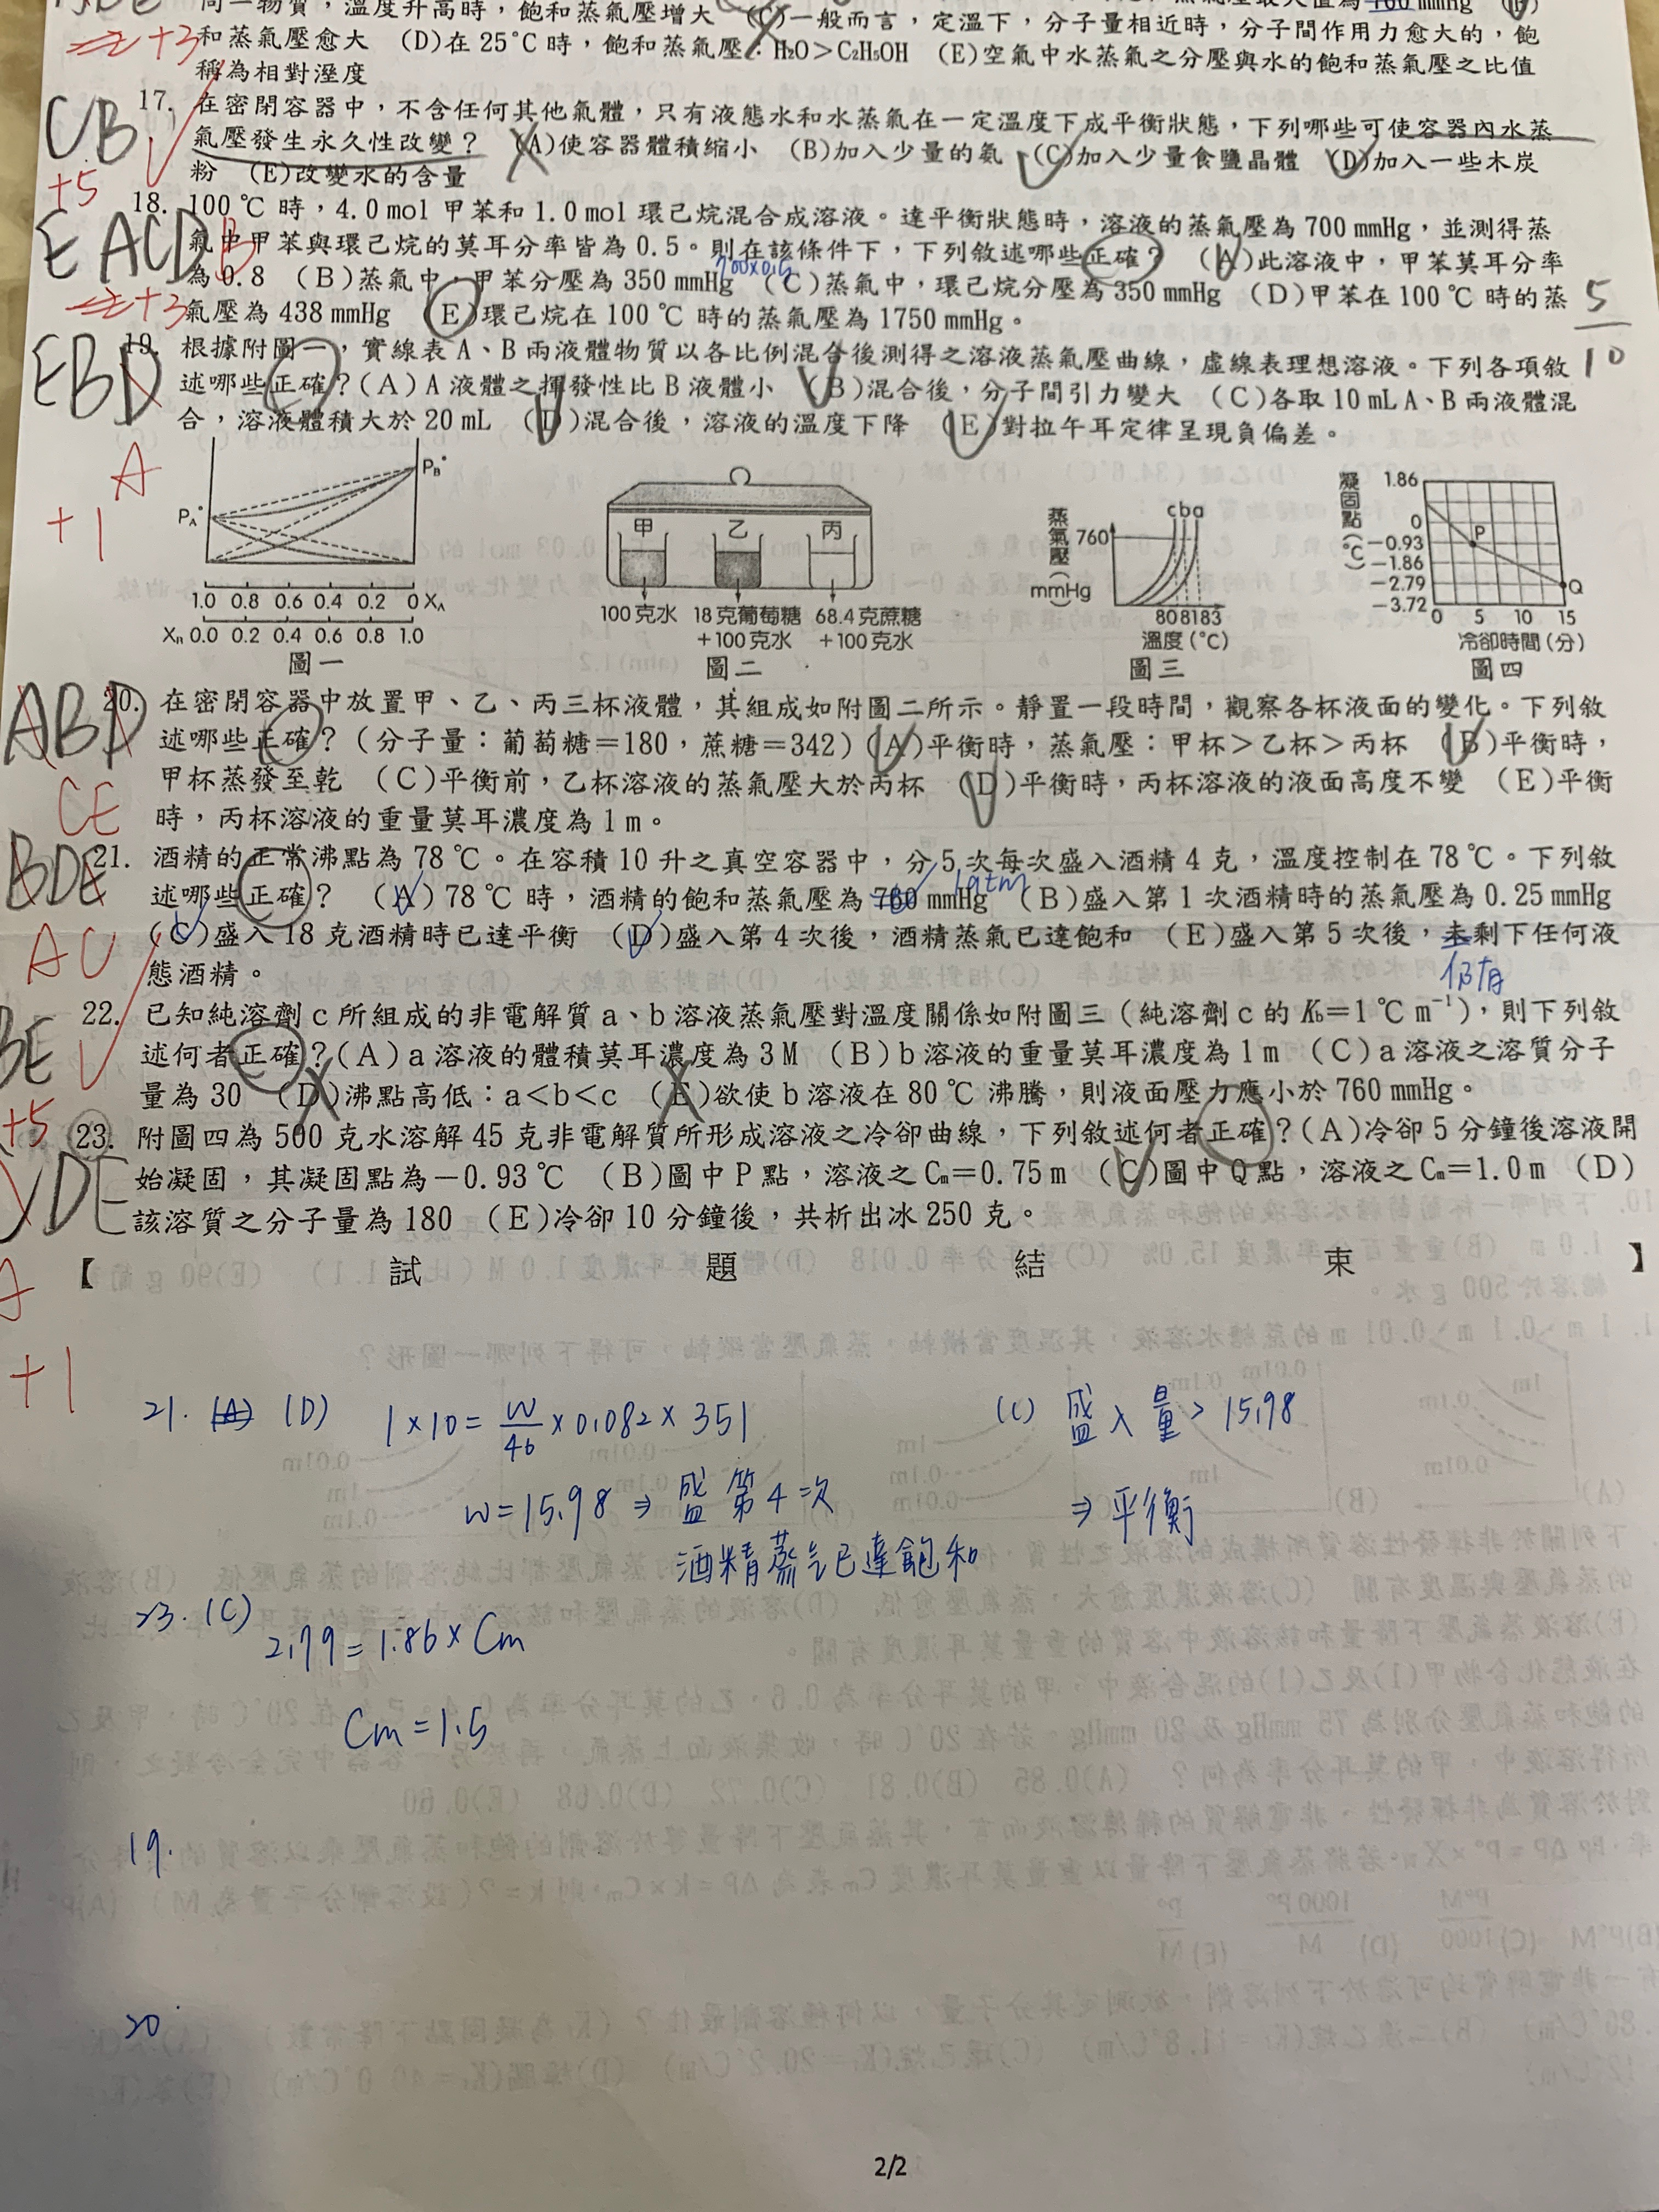 同一物質，溫度升高時，飽和蒸氣壓增大 (C)一般而言，定溫下，分子量相近時，分子間作用力愈大的，飽
和蒸氣壓愈大 (D)在25°C時，飽和蒸氣壓：H₂O＞C₂H₅OH (E)空氣中水蒸氣之分壓與水的飽和蒸氣壓之比值
稱為相對溼度
+3
CB
+5
17. 在密閉容器中，不含任何其他氣體，只有液態水和水蒸氣在一定溫度下成平衡狀態，下列哪些可使容器內水蒸
氣壓發生永久性改變？ (A)使容器體積縮小 (B)加入少量的氨 (C)加入少量食鹽晶體 (D)加入一些木炭
粉 (E)改變水的含量
EACD B
+3
18. 100℃時，4.0mol甲苯和1.0mol環己烷混合成溶液。達平衡狀態時，溶液的蒸氣壓為700 mmHg，並測得蒸
氣中甲苯與環己烷的莫耳分率皆為0.5。則在該條件下，下列敘述哪些正確？ (A)此溶液中，甲苯莫耳分率
為0.8 (B)蒸氣中，甲苯分壓為350 mmHg (C)蒸氣中，環己烷分壓為350 mmHg (D)甲苯在100℃時的蒸
700×0.5
氣壓為438 mmHg (E)環己烷在100℃時的蒸氣壓為1750 mmHg。
5
10
EBD
A
+1
19. 根據附圖一，實線表A、B兩液體物質以各比例混合後測得之溶液蒸氣壓曲線，虛線表理想溶液。下列各項敘
述哪些正確？(A)A液體之揮發性比B液體小 (B)混合後，分子間引力變大 (C)各取10 mL A、B兩液體混
合，溶液體積大於20 mL (D)混合後，溶液的溫度下降 (E)對拉午耳定律呈現負偏差。
PA°
PB°
1.0 0.8 0.6 0.4 0.2 0 XA
XB 0.0 0.2 0.4 0.6 0.8 1.0
圖一
甲 乙 丙
100克水 18克葡萄糖 68.4克蔗糖
+100克水 +100克水
圖二
蒸氣壓(mmHg)
760
c b a
80 81 83
溫度(°C)
圖三
凝固點(°C)
1.86
0
−0.93
−1.86
−2.79
−3.72
P
Q
0 5 10 15
冷卻時間(分)
圖四
ABD
CE
20. 在密閉容器中放置甲、乙、丙三杯液體，其組成如附圖二所示。靜置一段時間，觀察各杯液面的變化。下列敘
述哪些正確？(分子量：葡萄糖＝180，蔗糖＝342) (A)平衡時，蒸氣壓：甲杯＞乙杯＞丙杯 (B)平衡時，
甲杯蒸發至乾 (C)平衡前，乙杯溶液的蒸氣壓大於丙杯 (D)平衡時，丙杯溶液的液面高度不變 (E)平衡
時，丙杯溶液的重量莫耳濃度為1 m。
BDE
AC
21. 酒精的正常沸點為78℃。在容積10升之真空容器中，分5次每次盛入酒精4克，溫度控制在78℃。下列敘
述哪些正確？ (A)78℃時，酒精的飽和蒸氣壓為760 mmHg (B)盛入第1次酒精時的蒸氣壓為0.25 mmHg
1atm
(C)盛入18克酒精時已達平衡 (D)盛入第4次後，酒精蒸氣已達飽和 (E)盛入第5次後，未剩下任何液
仍有
態酒精。
BE
+5
22. 已知純溶劑c所組成的非電解質a、b溶液蒸氣壓對溫度關係如附圖三(純溶劑c的Kb＝1℃ m⁻¹)，則下列敘
述何者正確？(A)a溶液的體積莫耳濃度為3M (B)b溶液的重量莫耳濃度為1m (C)a溶液之溶質分子
量為30 (D)沸點高低：a＜b＜c (E)欲使b溶液在80℃沸騰，則液面壓力應小於760 mmHg。
DE
+1
23. 附圖四為500克水溶解45克非電解質所形成溶液之冷卻曲線，下列敘述何者正確？(A)冷卻5分鐘後溶液開
始凝固，其凝固點為－0.93℃ (B)圖中P點，溶液之Cm＝0.75m (C)圖中Q點，溶液之Cm＝1.0m (D)
該溶質之分子量為180 (E)冷卻10分鐘後，共析出冰250克。
【 試 題 結 束 】
21. (A) (D) 1×10=w/46×0.082×351
w=15.98 ⇒ 盛第4次
酒精蒸气已達飽和
(C) 盛入量>15.98
⇒平衡
23. (C)
2.79=1.86×Cm
Cm=1.5
19.
20
2/2